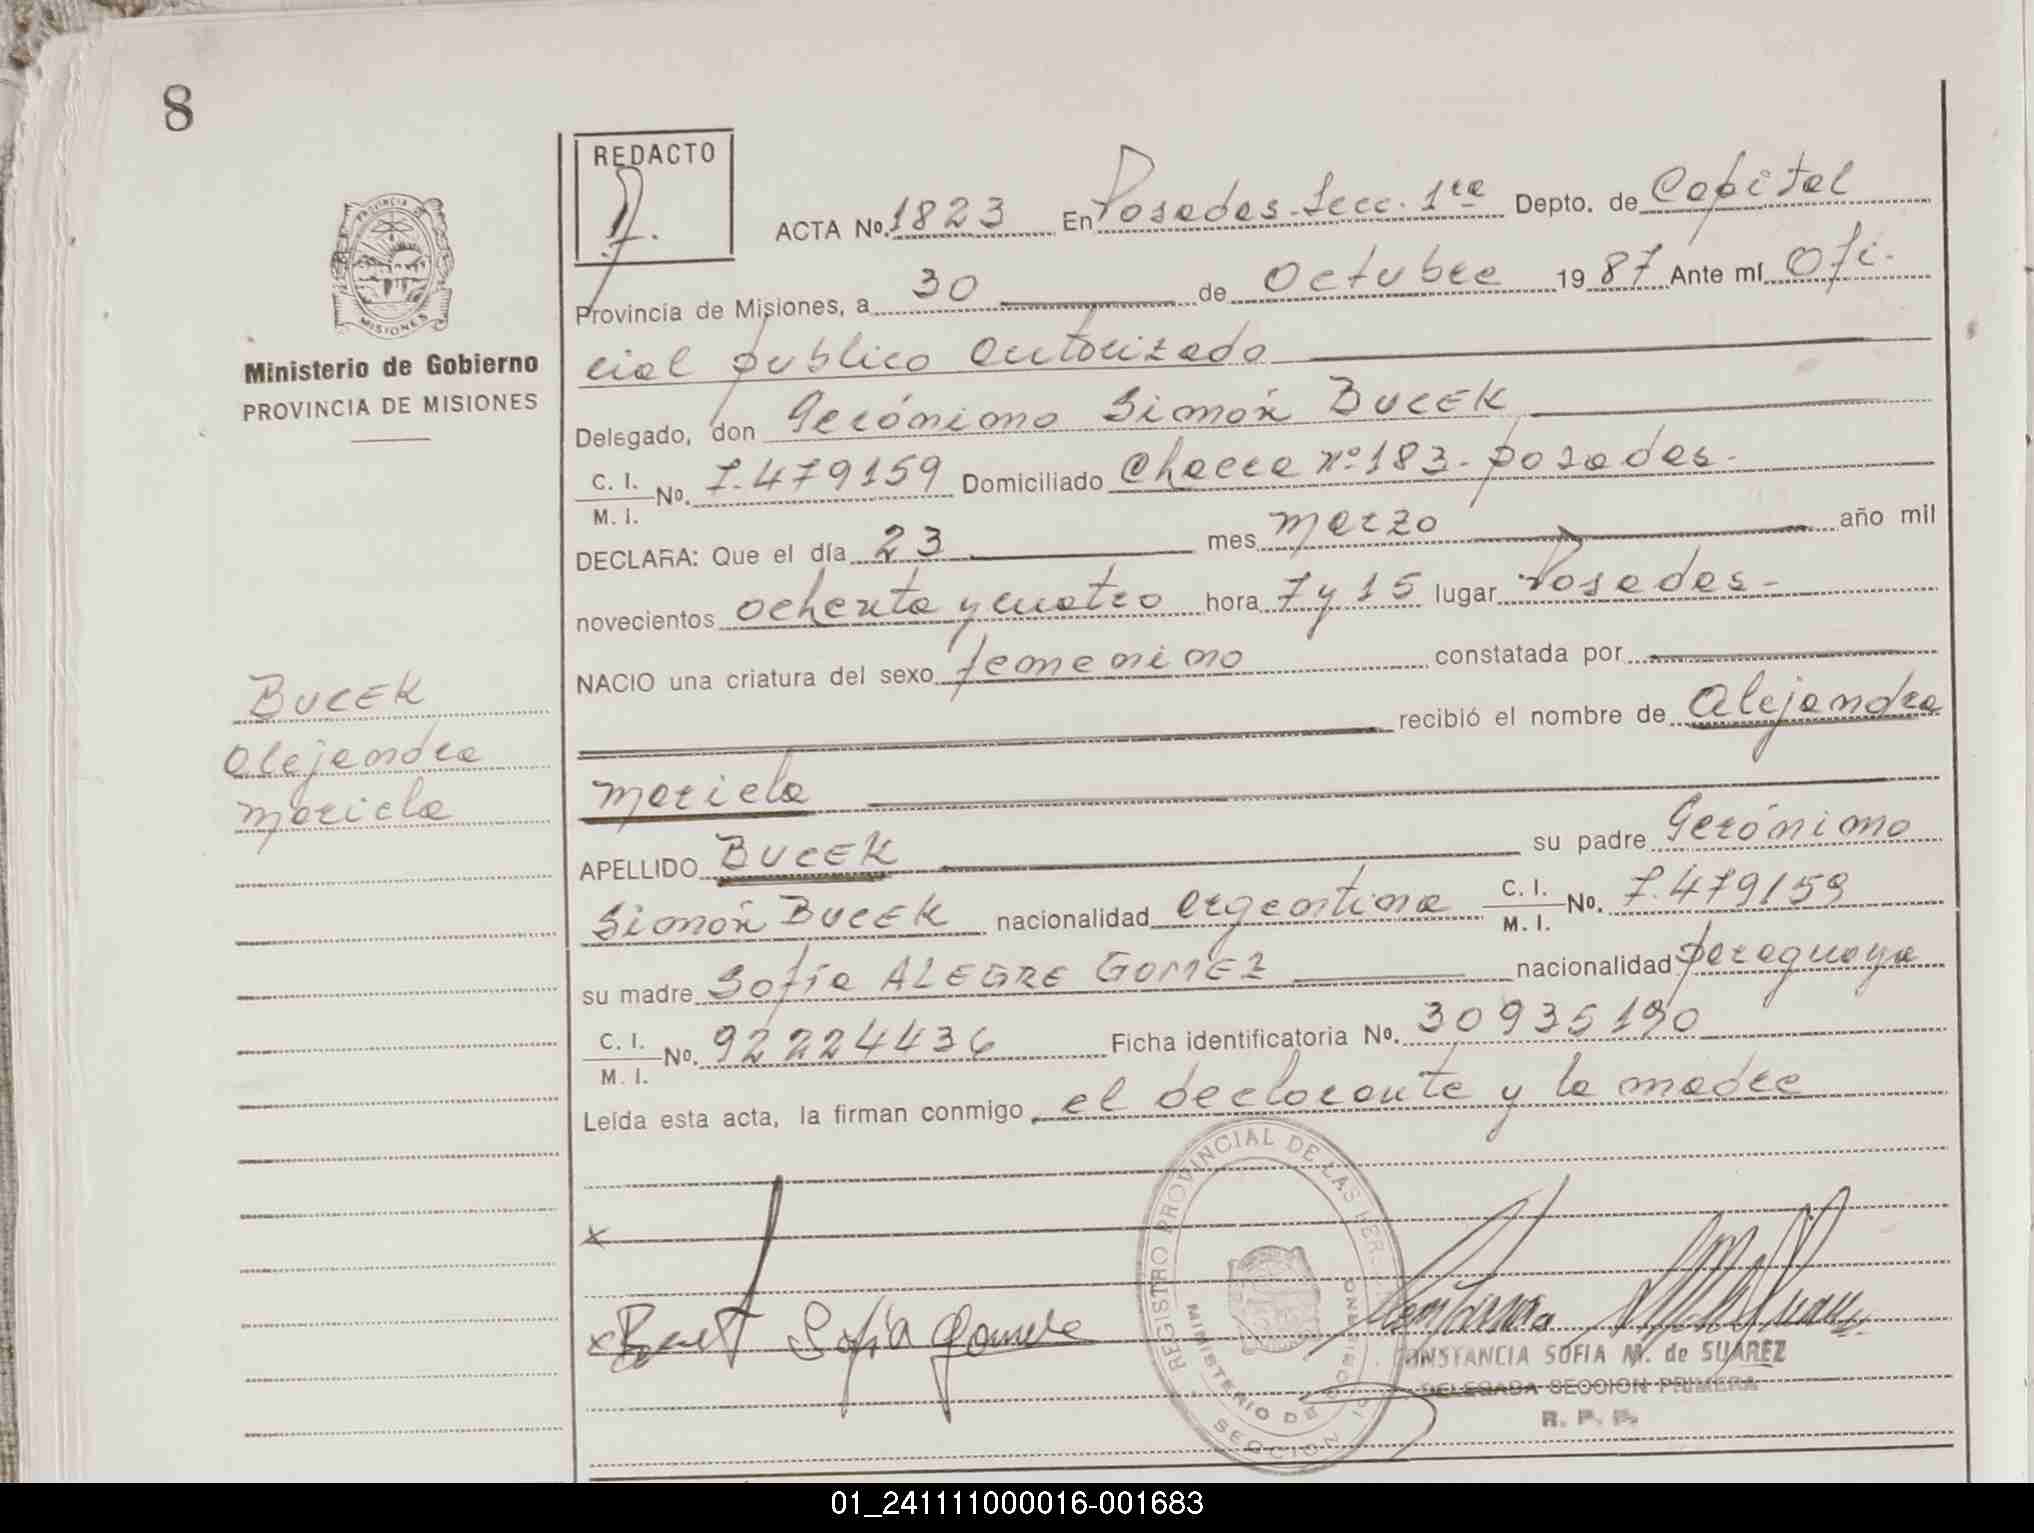 8
REDACTO
ACTA No. 1823 En Posadas-Secc. 1ra Depto. de Capital
Provincia de Misiones, a 30 de Octubre 1987 Ante mí Ofi-
cial público Autorizado
Delegado, don Gerónimo Simón BUCEK
C. I. / M. I. No. 7.479159 Domiciliado Chacra nº 183-posadas-
DECLARA: Que el día 23 mes marzo año mil
novecientos ochenta y cuatro hora 7 y 15 lugar Posadas-
NACIO una criatura del sexo femenino constatada por
recibió el nombre de Alejandra
mariela
APELLIDO BUCEK su padre Gerónimo
Simón BUCEK nacionalidad argentina C. I. / M. I. No. 7.479159
su madre Sofía ALEGRE GOMEZ nacionalidad paraguaya
C. I. / M. I. No. 92224436 Ficha identificatoria No. 30935190
Leída esta acta, la firman conmigo el declarante y la madre
PROVINCIA DE MISIONES
Ministerio de Gobierno
PROVINCIA DE MISIONES
BUCEK
Alejandra
mariela
x
x Sofía
REGISTRO PROVINCIAL DE LAS
MINISTERIO DE GOBIERNO
SECCION
CONSTANCIA SOFIA M. de SUAREZ
DELEGADA SECCION PRIMERA
R. P. P.
01_241111000016-001683